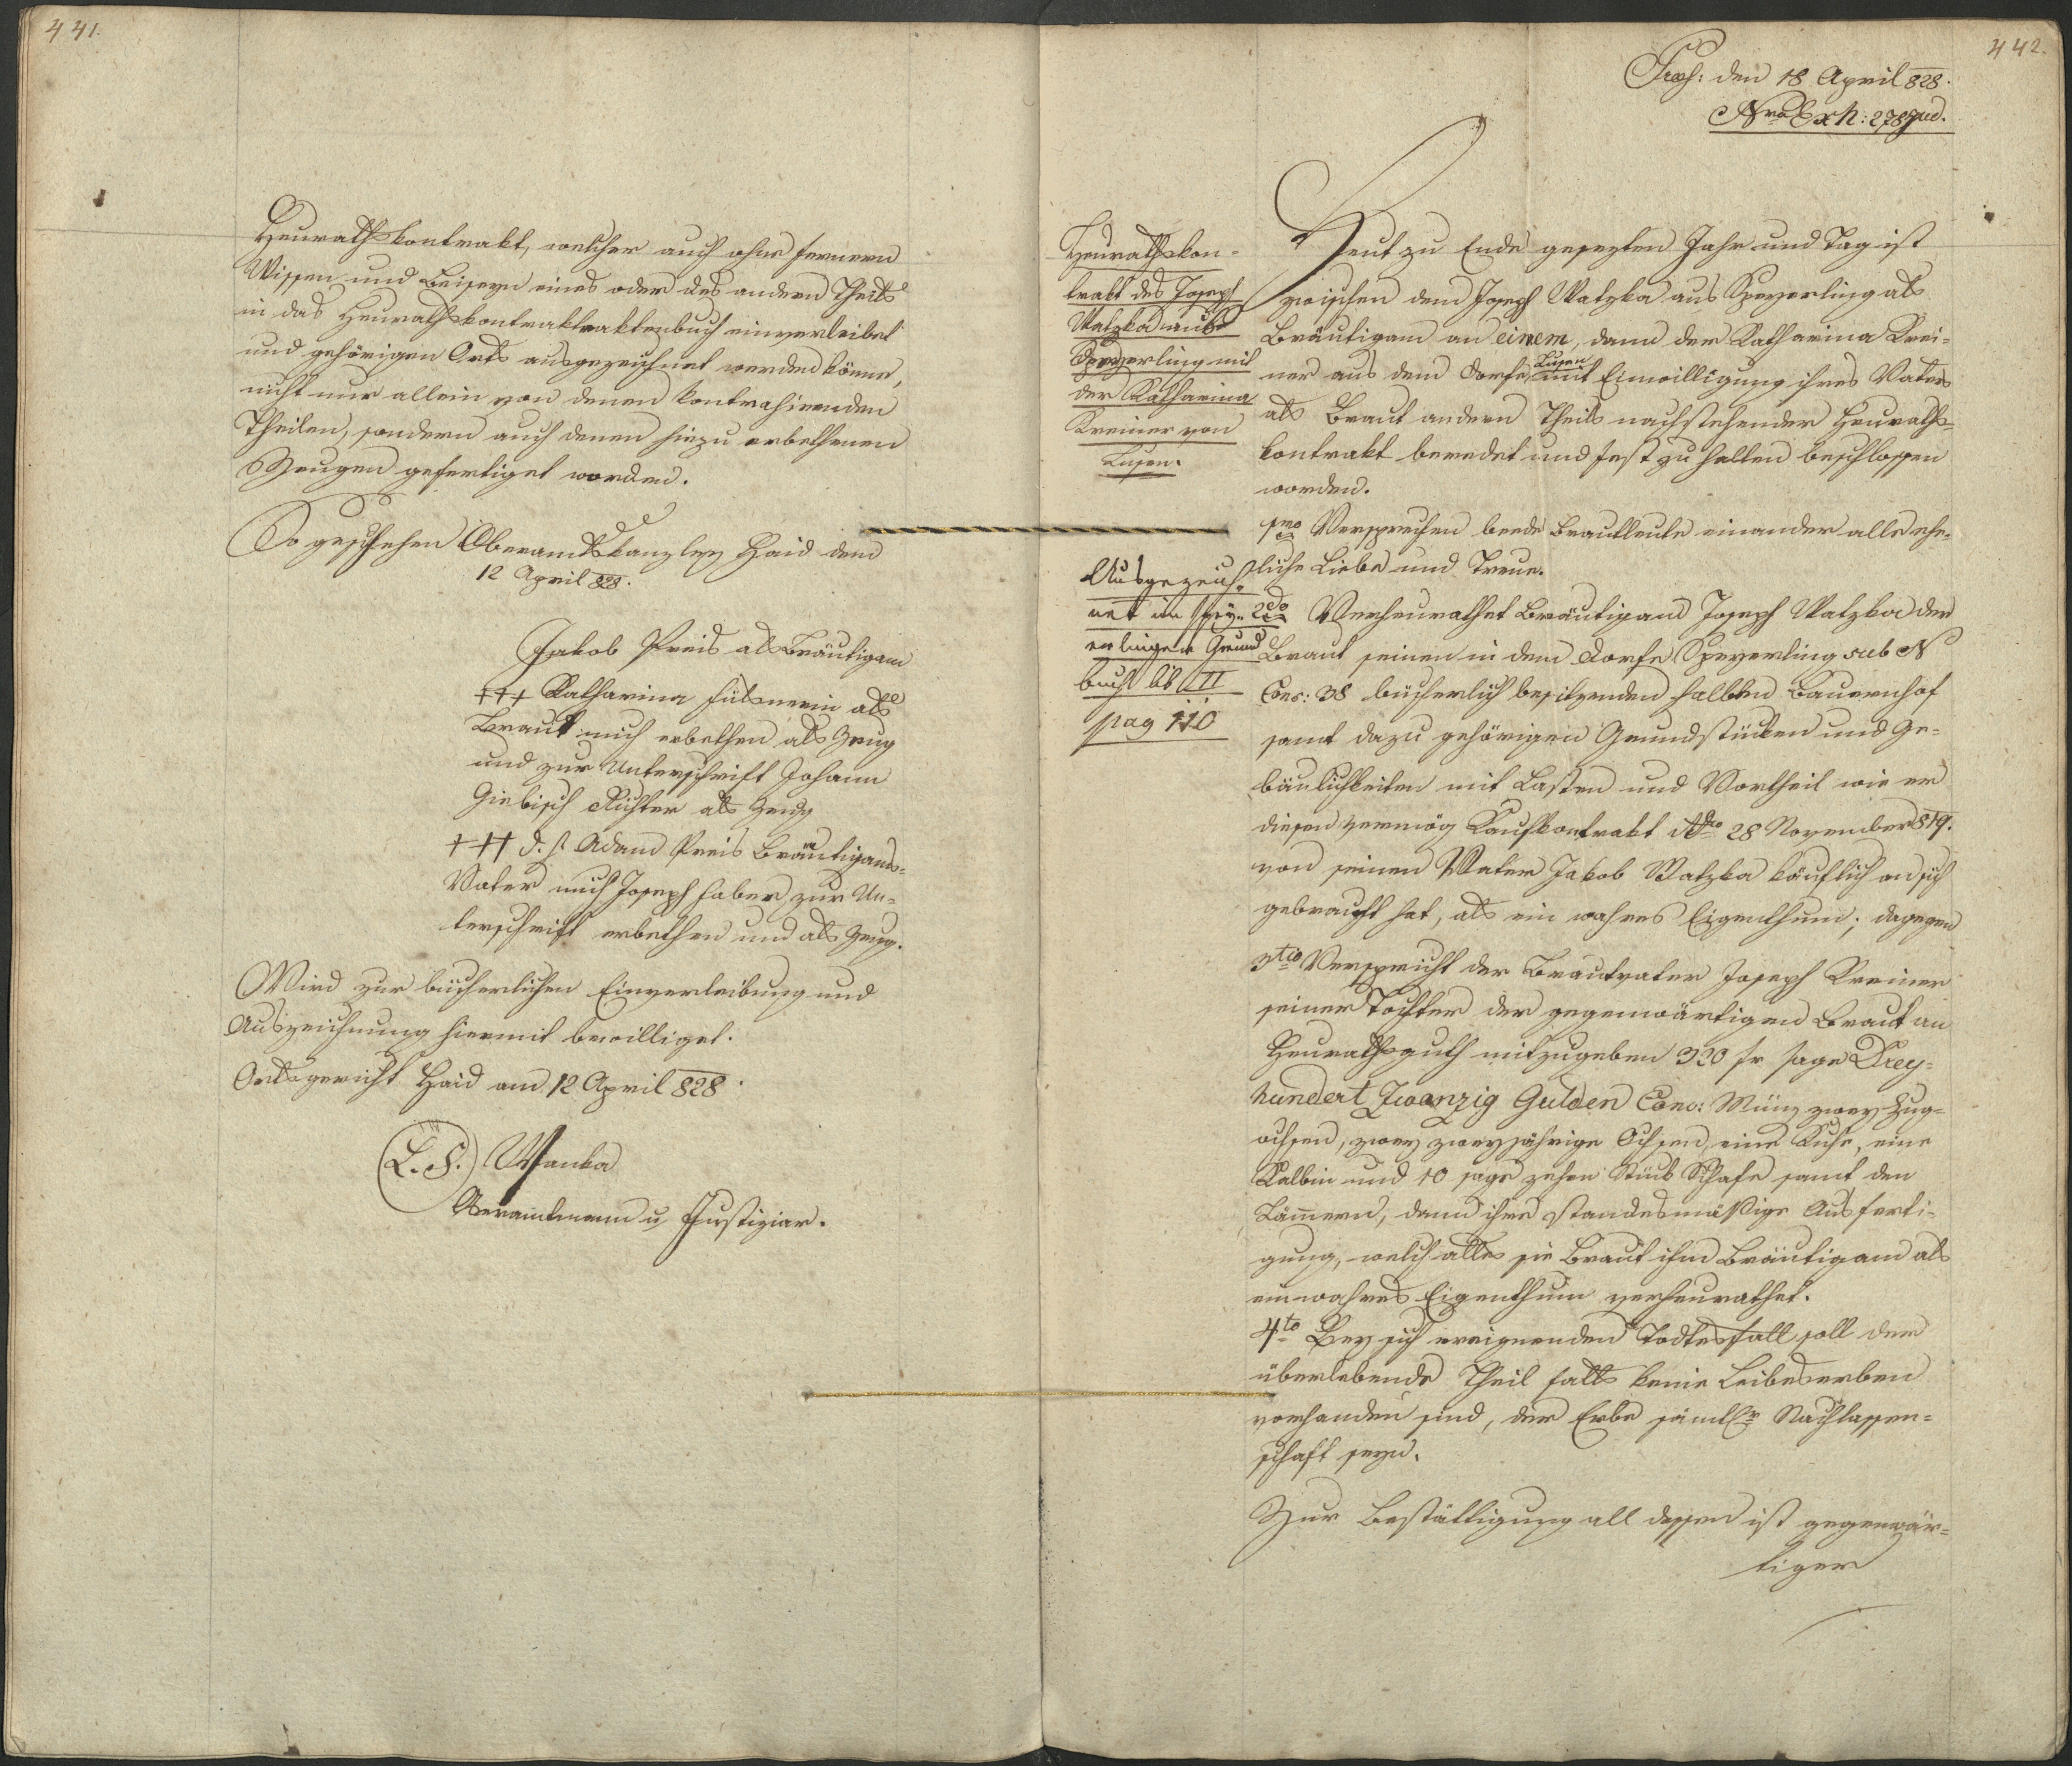 441.
Heurathskontrakt, welcher auch ohne fernern
Wissen und Beiseyn eines oder des andern Theils
in das Heurathskontraktraktenbuch einverleibet
und gehörigen Orts ausgezeichnet werden könne,
nicht nur allein von denen kontrahirenden
Theilen, sondern auch denen hiezu erbethenen
Zeugen gefertiget worden.
So geschehen Oberamtskanzley Haid dem
12 April 828.
Jakob Preis als Bräutigam
+++ Katharina als
Braut mich erbethen als Zeug
und zur Unterschrift Johann
Giebisch Richter als Zeug
+++ d. h. Adam Preis Bräutigams-
Vater mich Joseph Haber zur Un-
terschrift erbethen und als Zeug.
Wird zur bücherlichen Einverleibung und
Auszeichnung hiermit bewilliget.
Ortsgericht Haid am 12 April 828.
(L.S.) Wanka
Oberamtmann u Justiziar.
442.
Praes: den 18 April 828.
Nro Exh: 278 jud.
Heurathskon-
trakt des Joseph
Watzka aus
Speyerling mit
der Katharina
Kreiner von
Lusen.
Heut zu Ende gesezten Jahr und Tag ist
zwischen dem Joseph Watzka aus Speyerling als
Bräutigam an einem, dann der Katharina Krei-
ner aus dem Dorfe Lusen mit Einwilligung ihres Vaters
als Braut andern Theils nachstehender Heuraths-
kontrakt beredet und fest zu halten beschlossen
worden.
1mo Versprechen beede Brautleute einander alle ehe-
liche Liebe und Treue.
Ausgezeich-
net im Spey-
erlinger Grund
buch lib II
pag 110
2do Verheurathet Bräutigam Joseph Watzka der
Braut seinen in dem Dorfe Speyerling sub N
Cons: 38 bücherlich besitzenden halben Bauernhof
samt dazu gehörigen Grundstücken und Ge-
bäulichkeiten mit Lasten und Vortheil wie er
diesen vermög Kaufkontrakt ddto 28 November 819.
von seinen Vater Jakob Watzka käuflich an sich
gebracht hat, als ein wahres Eigenthum; dagegen
3tio Verspricht der Brautvater Joseph Kreiner
seiner Tochter der gegenwärtigen Braut an
Heurathsguth mitzugeben 320 fr sage Drey-
hundert Zwanzig Gulden Conv: Münz zwey Zug-
ochsen, zwey zweyjährige Ochsen, eine Kuhe, eine
Kalbin und 10 sage zehen Stück Schafe samt den
Lämern, dann ihre standesmäßige Ausferti-
gung, welch alles sie Braut ihm Bräutigam als
ein wahres Eigenthum verheurathet.
4to Bey sich ereignenden Todtesfall soll dem
überlebende Theil falls keine Leibeserben
vorhanden sind, der Erbe sämtler Nachlassen-
schaft seyn.
Zur Bestättigung all dessen ist gegenwär-
tiger